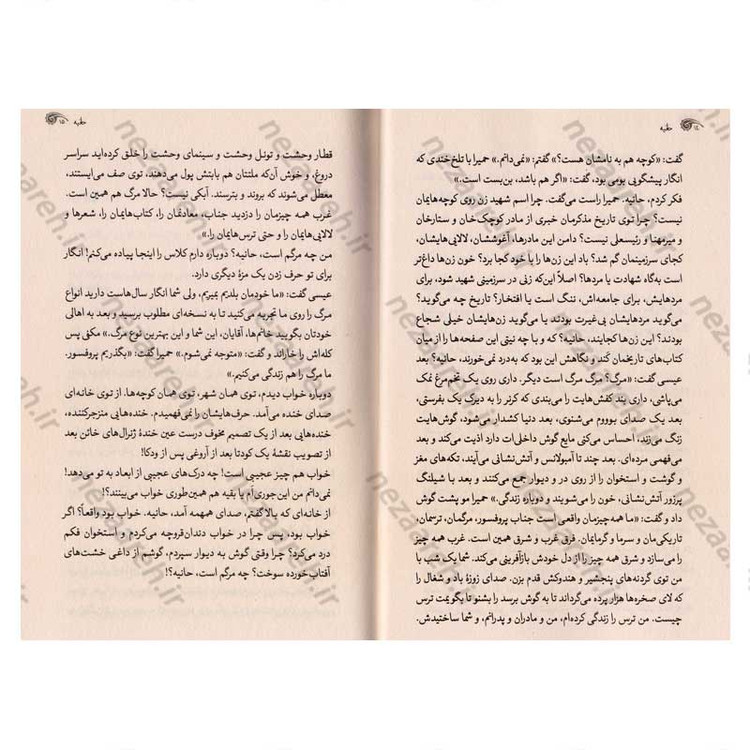 حفیه
گفت: «کوچه هم به نامشان هست؟» گفتم: «نمی‌دانم.» حمیرا با تلخ‌خندی که
انگار پیشگویی بومی بود، گفت: «اگر هم باشد، بن‌بست است.»
فکر کردم، حانیه. حمیرا راست می‌گفت. چرا اسم شهید زن روی کوچه‌هایمان
نیست؟ چرا توی تاریخ مذکرمان خبری از مادر کوچک‌خان و ستارخان
و میرمهنا و رئیسعلی نیست؟ دامن این مادرها، آغوششان، لالایی‌هایشان،
کجای سرزمینمان گم شد؟ باد این زن‌ها را با خود کجا برد؟ خون زن‌ها داغ‌تر
است به‌گاه شهادت یا مردها؟ اصلاً این‌که زنی در سرزمینی شهید شود، برای
مردهایش، برای جامعه‌اش، ننگ است یا افتخار؟ تاریخ چه می‌گوید؟
می‌گوید مردهایش بی‌غیرت بودند یا می‌گوید زن‌هایشان خیلی شجاع
بودند؟ این زن‌ها کجایند، حانیه؟ که و با چه نیتی این صفحه‌ها را از میان
کتاب‌های تاریخمان کند و نگاهش این بود که به‌درد نمی‌خورند، حانیه؟ بعد
عیسی گفت: «مرگ؟ مرگ مرگ است دیگر. داری روی یک تخم‌مرغ نمک
می‌پاشی، داری بند کفش‌هایت را می‌بندی که کزنر را به دیرک یک بفرستی،
بعد یک صدای بوووم می‌شنوی، بعد دنیا کشدار می‌شود، گوش‌هایت
زنگ می‌زند، احساس می‌کنی مایع گوش داخلی‌ات دارد اذیت می‌کند و بعد
می‌فهمی مرده‌ای. بعد چند تا آمبولانس و آتش‌نشانی می‌آیند، تکه‌های مغز
و گوشت و استخوان را از روی در و دیوار جمع می‌کنند و بعد با شیلنگ
پرزور آتش‌نشانی، خون را می‌شویند و دوباره زندگی.» حمیرا مو پشت گوش
داد و گفت: «ما همه‌چیزمان واقعی است جناب پروفسور، مرگمان، ترسمان،
تاریکی‌مان و سرما و گرمایمان. فرق غرب و شرق همین است. غرب همه چیز
را می‌سازد و شرق همه چیز را از دل خودش بازآفرینی می‌کند. شما یک شب با
من توی گردنه‌های پنجشیر و هندوکش قدم بزن. صدای زوزهٔ باد و شغال را
که لای صخره‌ها هزار پرده می‌گرداند تا به گوش برسد را بشنو تا بگویمت ترس
چیست. من ترس را زندگی کرده‌ام، من و مادران و پدرانم، و شما ساختیدش.
۱۵ حفیه
قطار وحشت و تونل وحشت و سینمای وحشت را خلق کرده‌اید سراسر
دروغ، و خوش آن‌که ملتتان هم بابتش پول می‌دهند، توی صف می‌ایستند،
معطل می‌شوند که بروند و بترسند. آبکی نیست؟ حالا مرگ هم همین است.
غرب همه چیزمان را دزدید جناب، معادنمان را، کتاب‌هایمان را، شعرها و
لالایی‌هایمان را و حتی ترس‌هایمان را.»
من چه مرگم است، حانیه؟ دوباره دارم کلاس را اینجا پیاده می‌کنم! انگار
برای تو حرف زدن یک مزهٔ دیگری دارد.
عیسی گفت: «ما خودمان بلدیم بمیریم، ولی شما انگار سال‌هاست دارید انواع
مرگ را روی ما تجربه می‌کنید تا به نسخه‌ای مطلوب برسید و بعد به اهالی
خودتان بگویید خانم‌ها، آقایان، این شما و این بهترین نوع مرگ.» مکثی پس
کله‌اش را خاراند و گفت: «متوجه نمی‌شوم.» حمیرا گفت: «بگذریم پروفسور.
ما مرگ را هم زندگی می‌کنیم.»
دوباره خواب دیدم، توی همان شهر، توی همان کوچه‌ها. از توی خانه‌ای
صدای خنده می‌آمد. حرف‌هایشان را نمی‌فهمیدم. خنده‌هایی منزجرکننده،
خنده‌هایی بعد از یک تصمیم مخوف درست عین خندهٔ ژنرال‌های خائن بعد
از تصویب نقشهٔ یک کودتا بعد از آروغی پس از ودکا!
خواب هم چیز عجیبی است! چه درک‌های عجیبی از ابعاد به تو می‌دهد!
نمی‌دانم من این‌جوری‌ام یا بقیه هم همین‌طوری خواب می‌بینند؟!
از خانه‌ای که بالا گفتم، صدای همهمه آمد، حانیه. خواب بود واقعاً؟ اگر
خواب بود، پس چرا در خواب دندان‌قروچه می‌کردم و استخوان فکم
درد می‌کرد؟ چرا وقتی گوش به دیوار سپردم، گوشم از داغی خشت‌های
آفتاب‌خورده سوخت؟ چه مرگم است، حانیه؟!
nezaareh.ir